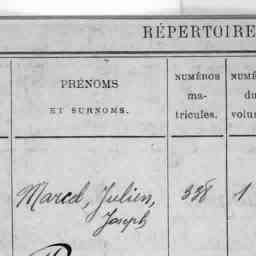 RÉPERTOIRE
PRÉNOMS
ET SURNOMS.
NUMÉROS
ma-
tricules.
NUMÉ
du
volum
Marcel, Julien,
Joseph
338
1